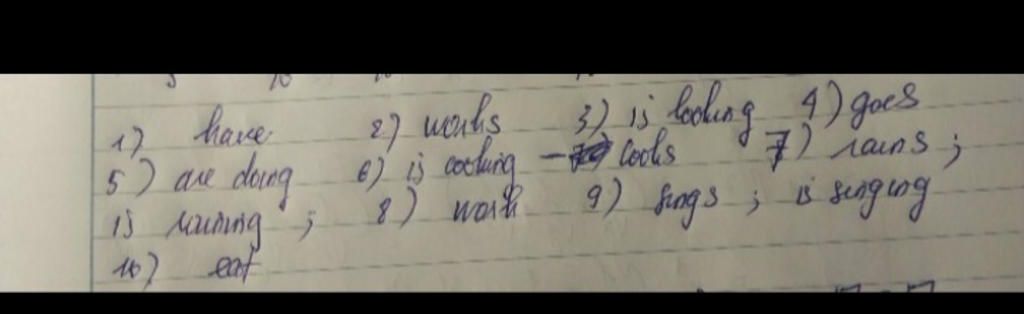 1) have 2) works 3) is looking 4) goes
5) are doing 6) is cooking - cooks 7) rains ;
is raining ; 8) work 9) sings ; is singing
10) eat